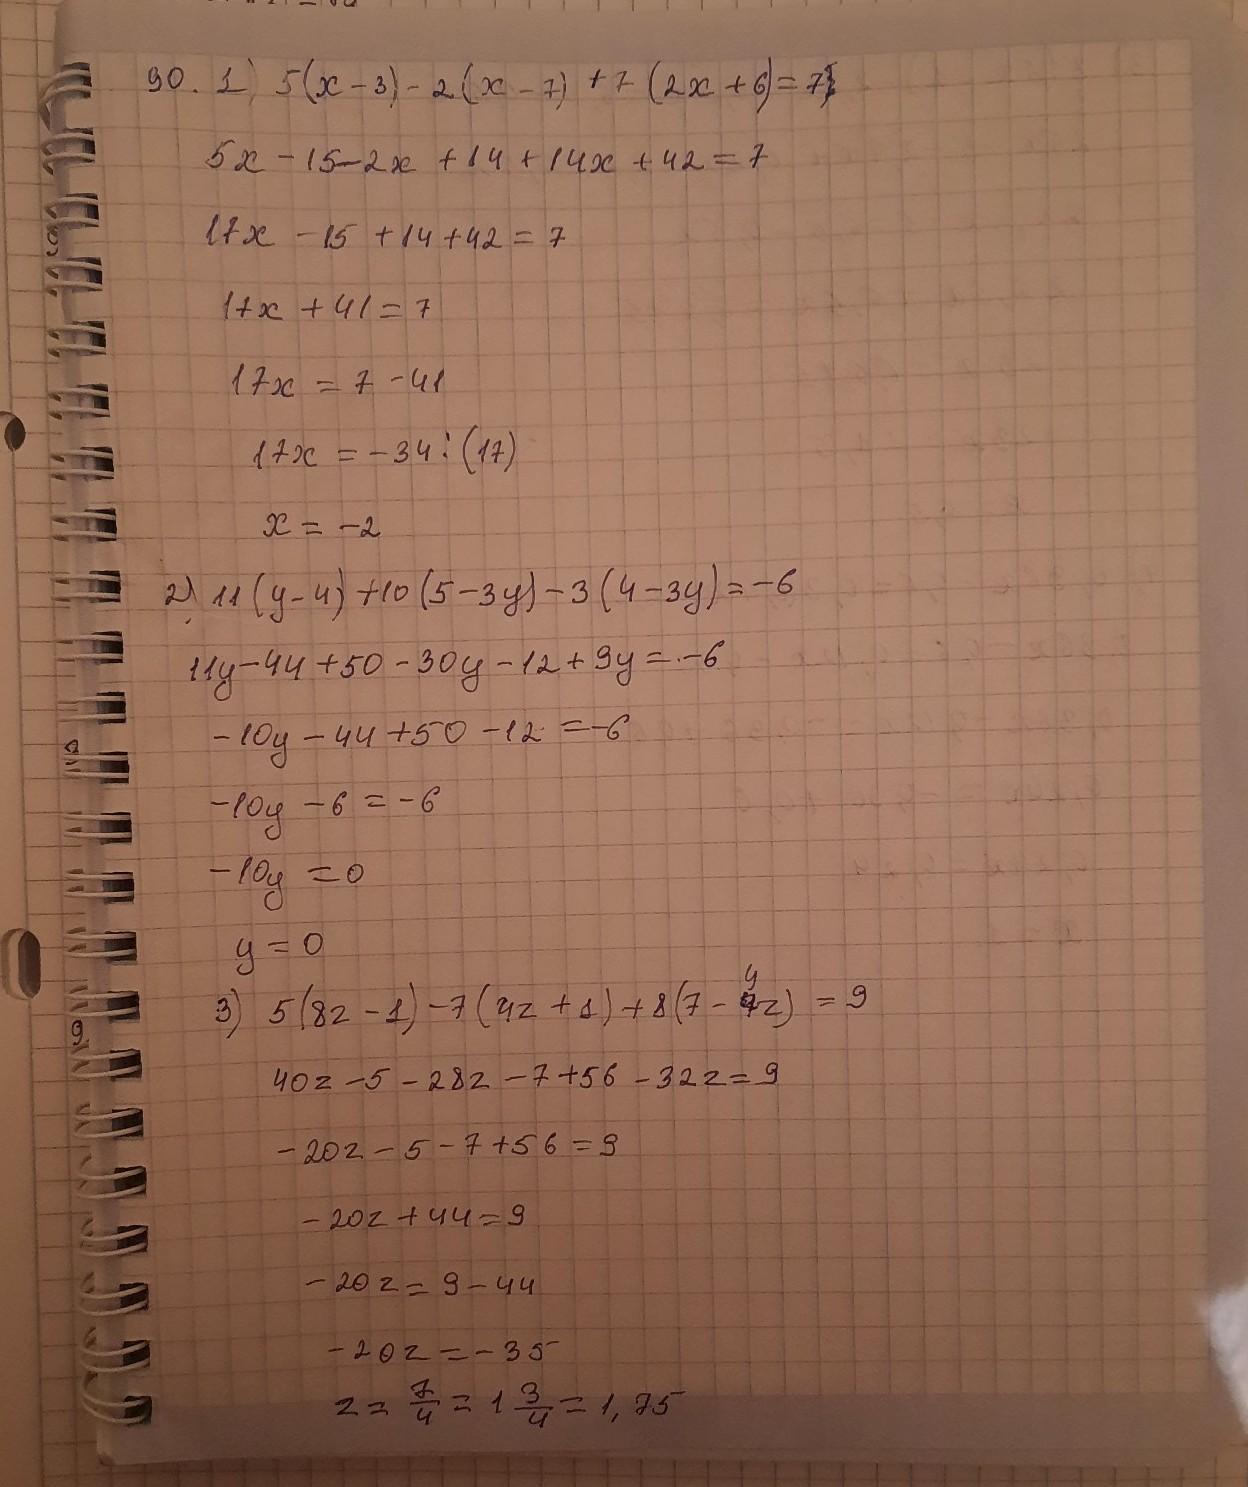 90. 1) 5(x-3)-2(x-7)+7(2x+6)=7
5x-15-2x+14+14x+42=7
17x-15+14+42=7
17x+41=7
17x=7-41
17x=-34:(17)
x=-2
2) 11(y-4)+10(5-3y)-3(4-3y)=-6
11y-44+50-30y-12+9y=-6
-10y-44+50-12=-6
-10y-6=-6
-10y=0
y=0
3) 5(8z-1)-7(4z+1)+8(7-4z)=9
40z-5-28z-7+56-32z=9
-20z-5-7+56=9
-20z+44=9
-20z=9-44
-20z=-35
z=7/4=1 3/4=1,75